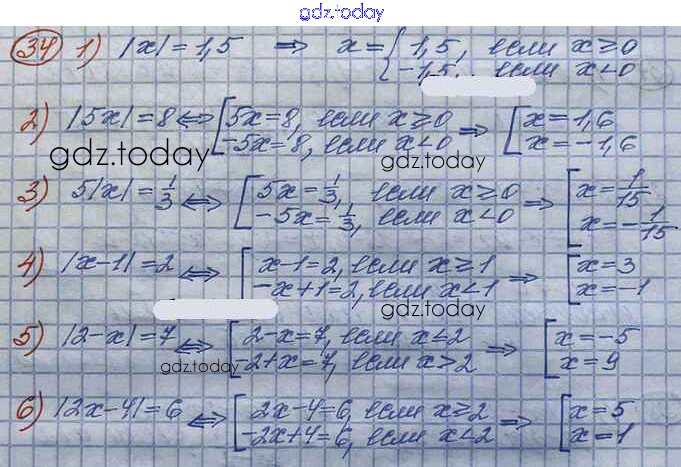 gdz.today
34 1) |x| = 1,5 ⇒ x = { 1,5, если x ≥ 0
-1,5, если x < 0
2) |5x| = 8 ⇔ [ 5x = 8, если x ≥ 0 ⇒ [ x = 1,6
-5x = 8, если x < 0 x = -1,6
gdz.today gdz.today
3) 5|x| = 1/3 ⇔ [ 5x = 1/3, если x ≥ 0 ⇒ [ x = 1/15
-5x = 1/3, если x < 0 x = -1/15
4) |x-1| = 2 ⇔ [ x-1 = 2, если x ≥ 1 ⇒ [ x = 3
-x+1 = 2, если x < 1 x = -1
gdz.today
5) |2-x| = 7 ⇔ [ 2-x = 7, если x ≤ 2 ⇒ [ x = -5
-2+x = 7, если x > 2 x = 9
gdz.today
6) |2x-4| = 6 ⇔ [ 2x-4 = 6, если x ≥ 2 ⇒ [ x = 5
-2x+4 = 6, если x < 2 x = 1